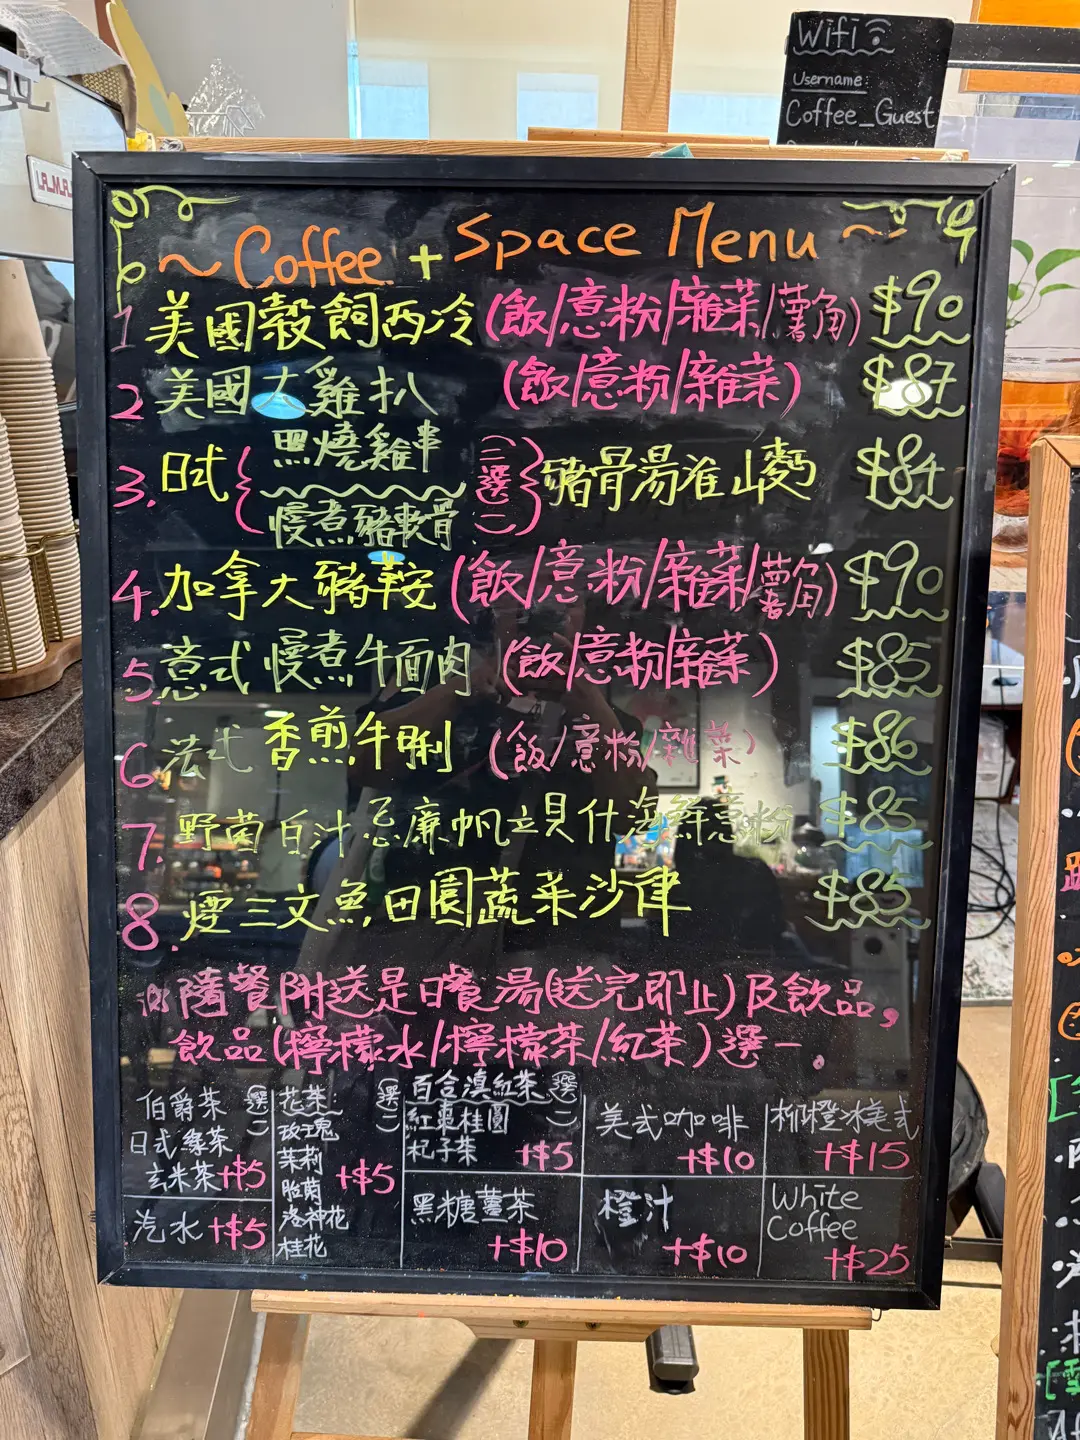 Wifi
Username:
Coffee_Guest
~ Coffee + Space Menu ~
1 美國穀飼西冷 (飯/意粉/雜菜/薯角) $90
2 美國大雞扒 (飯/意粉/雜菜) $87
3. 日式 { 照燒雞串 慢煮豬軟骨 二選一 } 豬骨湯淮山麪 $84
4. 加拿大豬鞍 (飯/意粉/雜菜/薯角) $90
5. 意式慢煮牛面肉 (飯/意粉/雜菜) $85
6 法式香煎牛脷 (飯/意粉/雜菜) $86
7. 野菌白汁忌廉帆立貝什海鮮意粉 $85
8. 煙三文魚田園蔬菜沙律 $85
隨餐附送是日餐湯(送完即止)及飲品,
飲品(檸檬水/檸檬茶/紅茶)選一。
伯爵茶
日式綠茶
玄米茶
選一
+$5
汽水 +$5
花茶
玫瑰
茉莉
胎菊
洛神花
桂花
選一
+$5
百合滇紅茶
紅棗桂圓
杞子茶
選一
+$5
黑糖薑茶
+$10
美式咖啡
+$10
橙汁
+$10
柳橙冰美式
+$15
White
Coffee
+$25